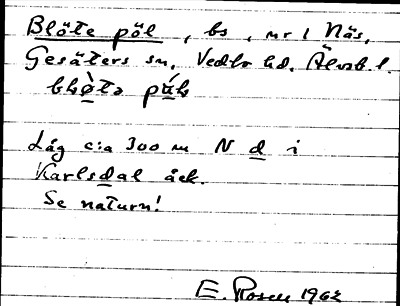 Blöte pöl, bs, nr 1 Näs,
Gesäters sn, Vedbo hd, Älvsb. l.
Låg c:a 300 m N d i
Karlsdal åck.
Se naturn!
E. Rosen 1962